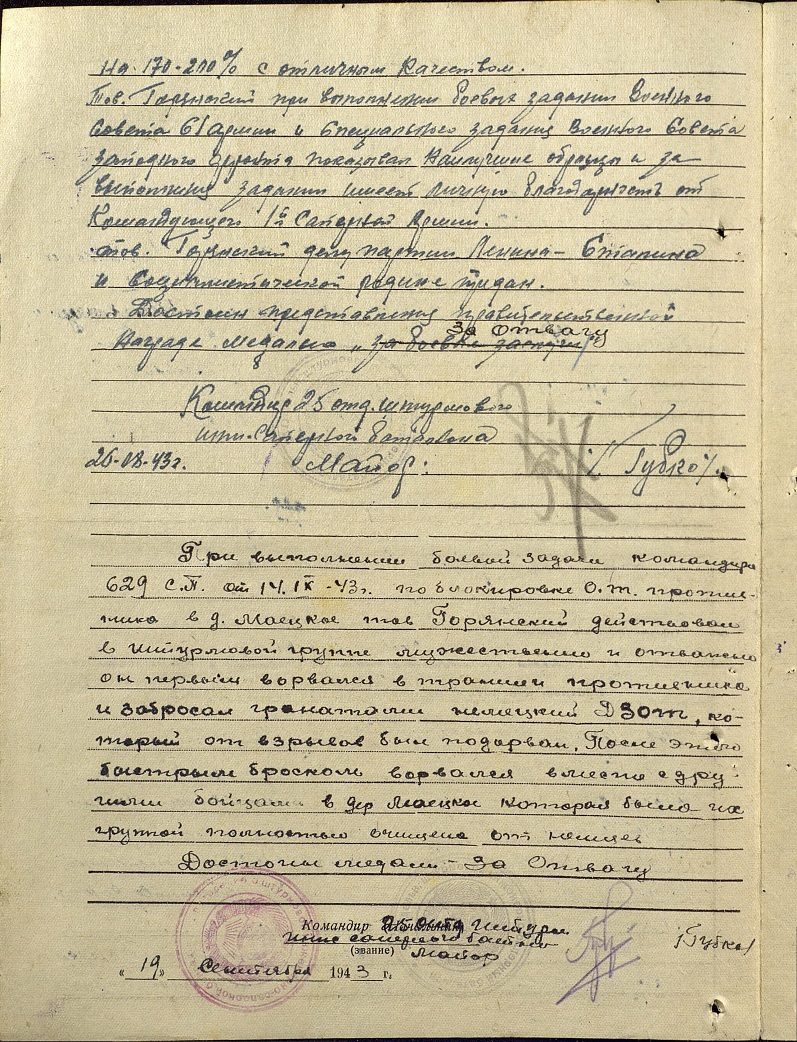 на 170-200% с отличным качеством.
Тов. Горянский при выполнении боевых заданий Военного
Совета 61 Армии и Специального задания Военного Совета
западного фронта показывал наилучшие образцы и за
выполнения задания имеет личную благодарность от
Командующего 1й Саперной Армии.
тов. Горянский делу партии Ленина-Сталина
и социалистической родине предан.
Достоин представления правительственной
За Отвагу
награде медалью „за боевые заслуги"
Командир 25 отд. штурмового
инж. Саперного батальона
26.08.43г. Майор: /Губко/.
При выполнении боевой задачи командира
629 с.п. от 14.IX-43г. по блокировке О.т. против-
ника в д. Маецкое тов Горянский действовал
в штурмовой группе мужественно и отважно
он первым ворвался в траншеи противника
и забросал гранатами немецкий ДЗОТ, ко-
торый от взрывов был подорван. После этого
быстрым броском ворвался вместе с дру-
гими бойцами в дер Маецкое которая была их
группой полностью очищена от немцев
Достоин медали - За Отвагу
Командир 25 отд штурм
инж саперного батал
(звание) Майор Губко
„19" Сентября 1943 г.